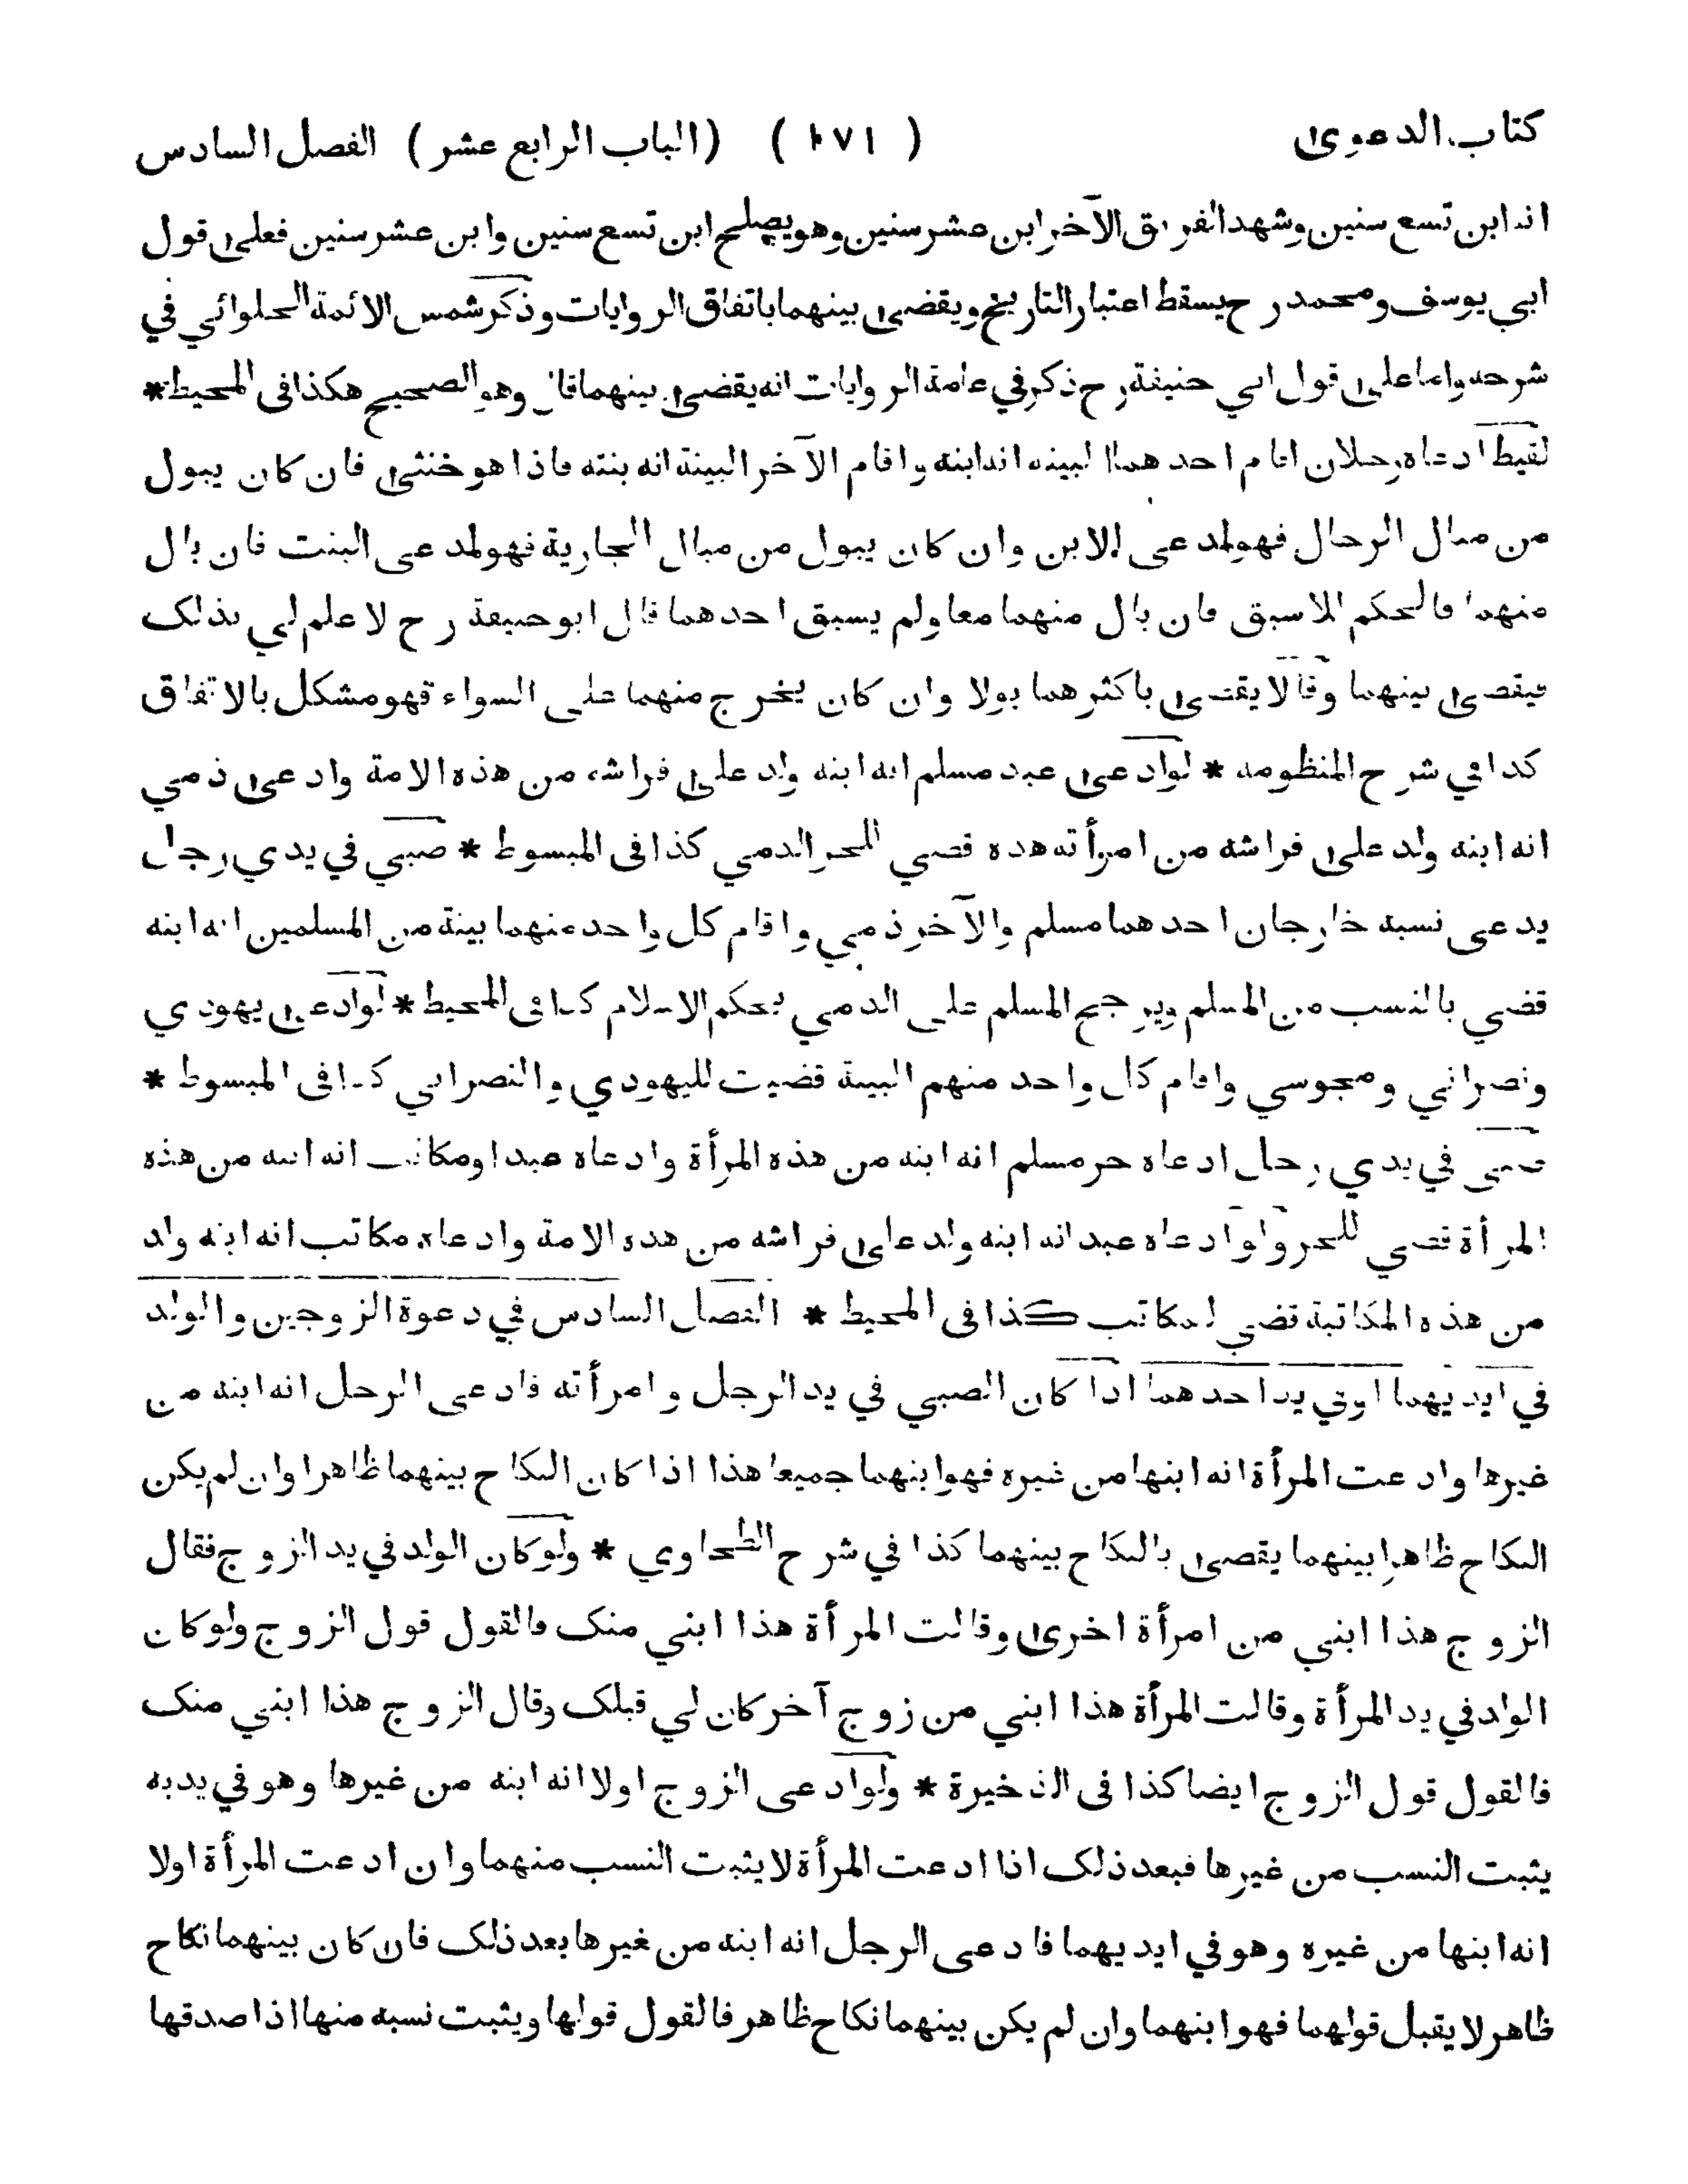 كتاب الدعوى ( ١٧١ ) (الباب الرابع عشر) الفصل السادس
انه ابن تسع سنين وشهد الفريق الآخر ابن عشر سنين وهو يصلح ابن تسع سنين وابن عشر سنين فعلى قول
ابي يوسف ومحمد رح يسقط اعتبار التاريخ ويقضى بينهما باتفاق الروايات وذكر شمس الائمة الحلوائي في
شرحه واما على قول ابي حنيفة رح ذكر في عامة الروايات انه يقضى بينهما قال وهو الصحيح هكذا فى المحيط *
لقيط ادعاه رجلان اقام احدهما البينة انه ابنه واقام الآخر البينة انه بنته فاذا هو خنثى فان كان يبول
من مبال الرجال فهو لمدعى الابن وان كان يبول من مبال الجارية فهو لمدعى البنت فان بال
منهما فالحكم للاسبق فان بال منهما معا ولم يسبق احدهما قال ابو حنيفة رح لا علم لي بذلك
فيقضى بينهما وقالا يقضى باكثرهما بولا وان كان يخرج منهما على السواء فهو مشكل بالاتفاق
كذا في شرح المنظومه * لو ادعى عبد مسلم انه ابنه ولد على فراشه من هذه الامة وادعى ذمي
انه ابنه ولد على فراشه من امرأته هذه قضي للحر الذمي كذا فى المبسوط * صبي في يدي رجل
يدعى نسبه خارجان احدهما مسلم والآخر ذمي واقام كل واحد منهما بينة من المسلمين انه ابنه
قضي بالنسب من المسلم ويرجح المسلم على الذمي بحكم الاسلام كذا فى المحيط * لو ادعى يهودي
ونصراني ومجوسي واقام كل واحد منهم البينة قضيت لليهودي والنصراني كذا فى المبسوط *
صبي في يدي رجل ادعاه حر مسلم انه ابنه من هذه المرأة وادعاه عبد او مكاتب انه ابنه من هذه
المرأة قضي للحر ولو ادعاه عبد انه ابنه ولد على فراشه من هذه الامة وادعاه مكاتب انه ابنه ولد
من هذه المكاتبة قضي لمكاتب كذا فى المحيط * الفصل السادس في دعوة الزوجين والولد
في ايديهما او في يد احدهما اذا كان الصبي في يد الرجل وامرأته فادعى الرجل انه ابنه من
غيرها وادعت المرأة انه ابنها من غيره فهو ابنهما جميعا هذا اذا كان النكاح بينهما ظاهرا وان لم يكن
النكاح ظاهرا بينهما يقضى بالنكاح بينهما كذا في شرح الطحاوي * ولو كان الولد في يد الزوج فقال
الزوج هذا ابني من امرأة اخرى وقالت المرأة هذا ابني منك فالقول قول الزوج ولو كان
الولد في يد المرأة وقالت المرأة هذا ابني من زوج آخر كان لي قبلك وقال الزوج هذا ابني منك
فالقول قول الزوج ايضا كذا فى الذخيرة * ولو ادعى الزوج اولا انه ابنه من غيرها وهو في يديه
يثبت النسب من غيرها فبعد ذلك اذا ادعت المرأة لا يثبت النسب منهما وان ادعت المرأة اولا
انه ابنها من غيره وهو في ايديهما فادعى الرجل انه ابنه من غيرها بعد ذلك فان كان بينهما نكاح
ظاهر لا يقبل قولهما فهو ابنهما وان لم يكن بينهما نكاح ظاهر فالقول قولها ويثبت نسبه منها اذا صدقها